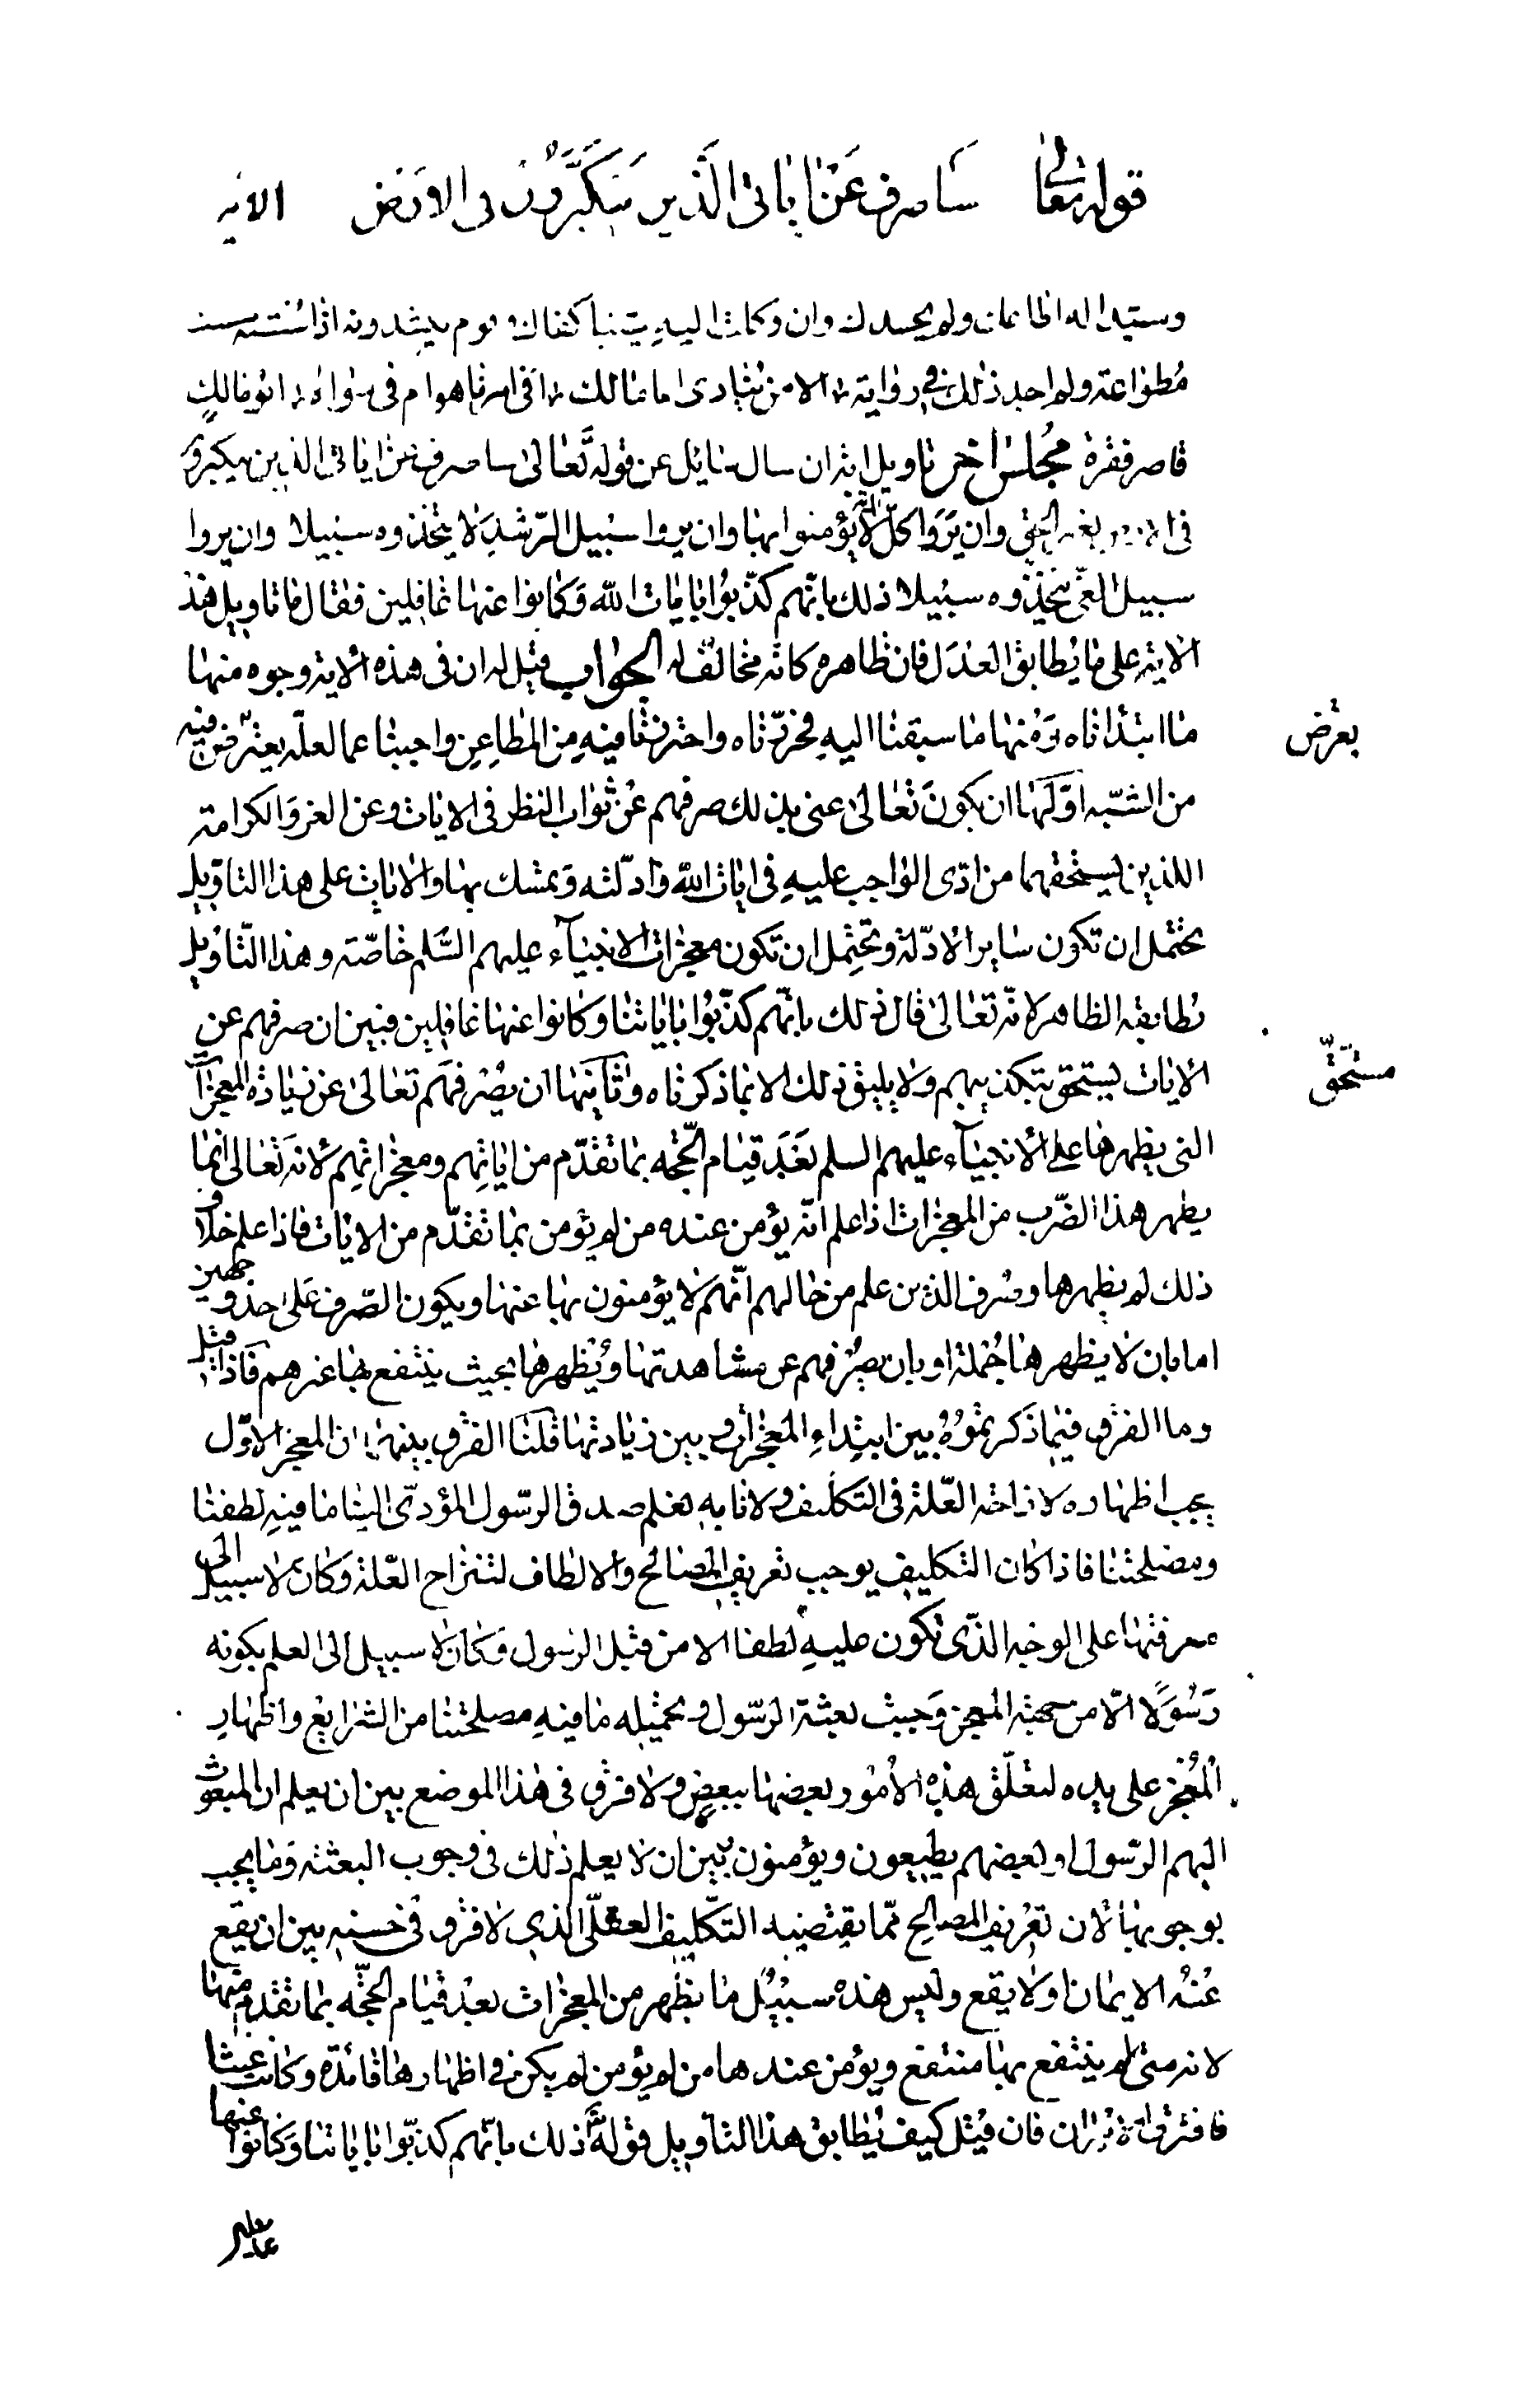 قوله تعالى سأصرف عن اياتى الذين يتكبرون فى الارض الايه
مطواعة ولم اجد ذلك فى رواية
قاصر فقرة مجلس اخر تاويل اية ان سال سائل عن قوله تعالى ساصرف عن اياتى الذين يتكبرون
فى الارض بغير الحق وان يروا كل اية لا يؤمنوا بها وان يروا سبيل الرشد لا يتخذوه سبيلا وان يروا
سبيل الغى يتخذوه سبيلا ذلك بانهم كذبوا بايات الله وكانوا عنها غافلين فقال ما تاويل هذه
الاية على ما يطابق العدل فان ظاهره كانه مخالف له الجواب قيل له ان فى هذه الاية وجوه منها
ما ابتدأناه ومنها ما سبقنا اليه فحررناه واحترزنا فيه من المطاعن واجبنا عما لعله يعترض فيه
بعرض
من الشبه اولها ان يكون تعالى عنى بذلك صرفهم عن ثواب النظر فى الايات وعن العز والكرامة
اللذين يستحقهما من ادى الواجب عليه فى ايات الله وادلته وتمسك بها والايات على هذا التاويل
يحتمل ان تكون ساير الادلة ويحتمل ان تكون معجزات الانبياء عليهم السلم خاصة وهذا التاويل
يطابقه الظاهر لانه تعالى قال ذلك بانهم كذبوا باياتنا وكانوا عنها غافلين فبين ان صرفهم عن
الايات يستحق بتكذيبهم ولا يليق ذلك الا بما ذكرناه وثانيها ان يصرفهم تعالى عن زيادة المعجزات
مستحق
التى يظهرها على الانبياء عليهم السلم بعد قيام الحجة بما تقدم من اياتهم ومعجزاتهم لانه تعالى انما
يظهر هذا الضرب من المعجزات اذا علم انه يؤمن عنده من لم يؤمن بما تقدم من الايات فاذا علم خلاف
ذلك لم يظهرها وصرف الذين علم من حالهم انهم لا يؤمنون بها عنها ويكون الصرف على احد وجهين
اما بان لا يظهرها جملة او بان يصرفهم عن مشاهدتها ويظهرها بحيث ينتفع بها غيرهم فاذا قيل
وما الفرق فيما ذكرتموه بين ابتداء المعجزات وبين زيادتها قلنا الفرق بينهما ان المعجز الاول
يجب اظهاره لازاحة العلة فى التكليف ولانا به نعلم صدق الرسول المؤدى الينا ما فيه لطفنا
ومصلحتنا فاذا كان التكليف يوجب تعريف المصالح والالطاف لتنزاح العلة وكان لا سبيل الى
معرفتها على الوجه الذى تكون عليه لطفا الا من قبل الرسول وكان لا سبيل الى العلم بكونه
رسولا الا من جهة المعجز وجبت بعثة الرسول وتحميله ما فيه مصلحتنا من الشرايع واظهار
المعجز على يده لتعلق هذه الامور بعضها ببعض ولا فرق فى هذا الموضع بين ان يعلم ان المبعوث
اليهم الرسول او بعضهم يطيعون ويؤمنون وبين ان لا يعلم ذلك فى وجوب البعثة وما يجب
بوجوبها لان تعريف المصالح مما يقتضيه التكليف العقلى الذى لا فرق فى حسنه بين ان يقع
عنده الايمان او لا يقع وليس هذه سبيل ما يظهر من المعجزات بعد قيام الحجة بما تقدم منها
لانه متى لم ينتفع بها منتفع ويؤمن عندها من لم يؤمن لم يكن فى اظهارها فائدة وكانت عبثا
فافترق الامران فان قيل كيف يطابق هذا التاويل قوله ذلك بانهم كذبوا باياتنا وكانوا عنها